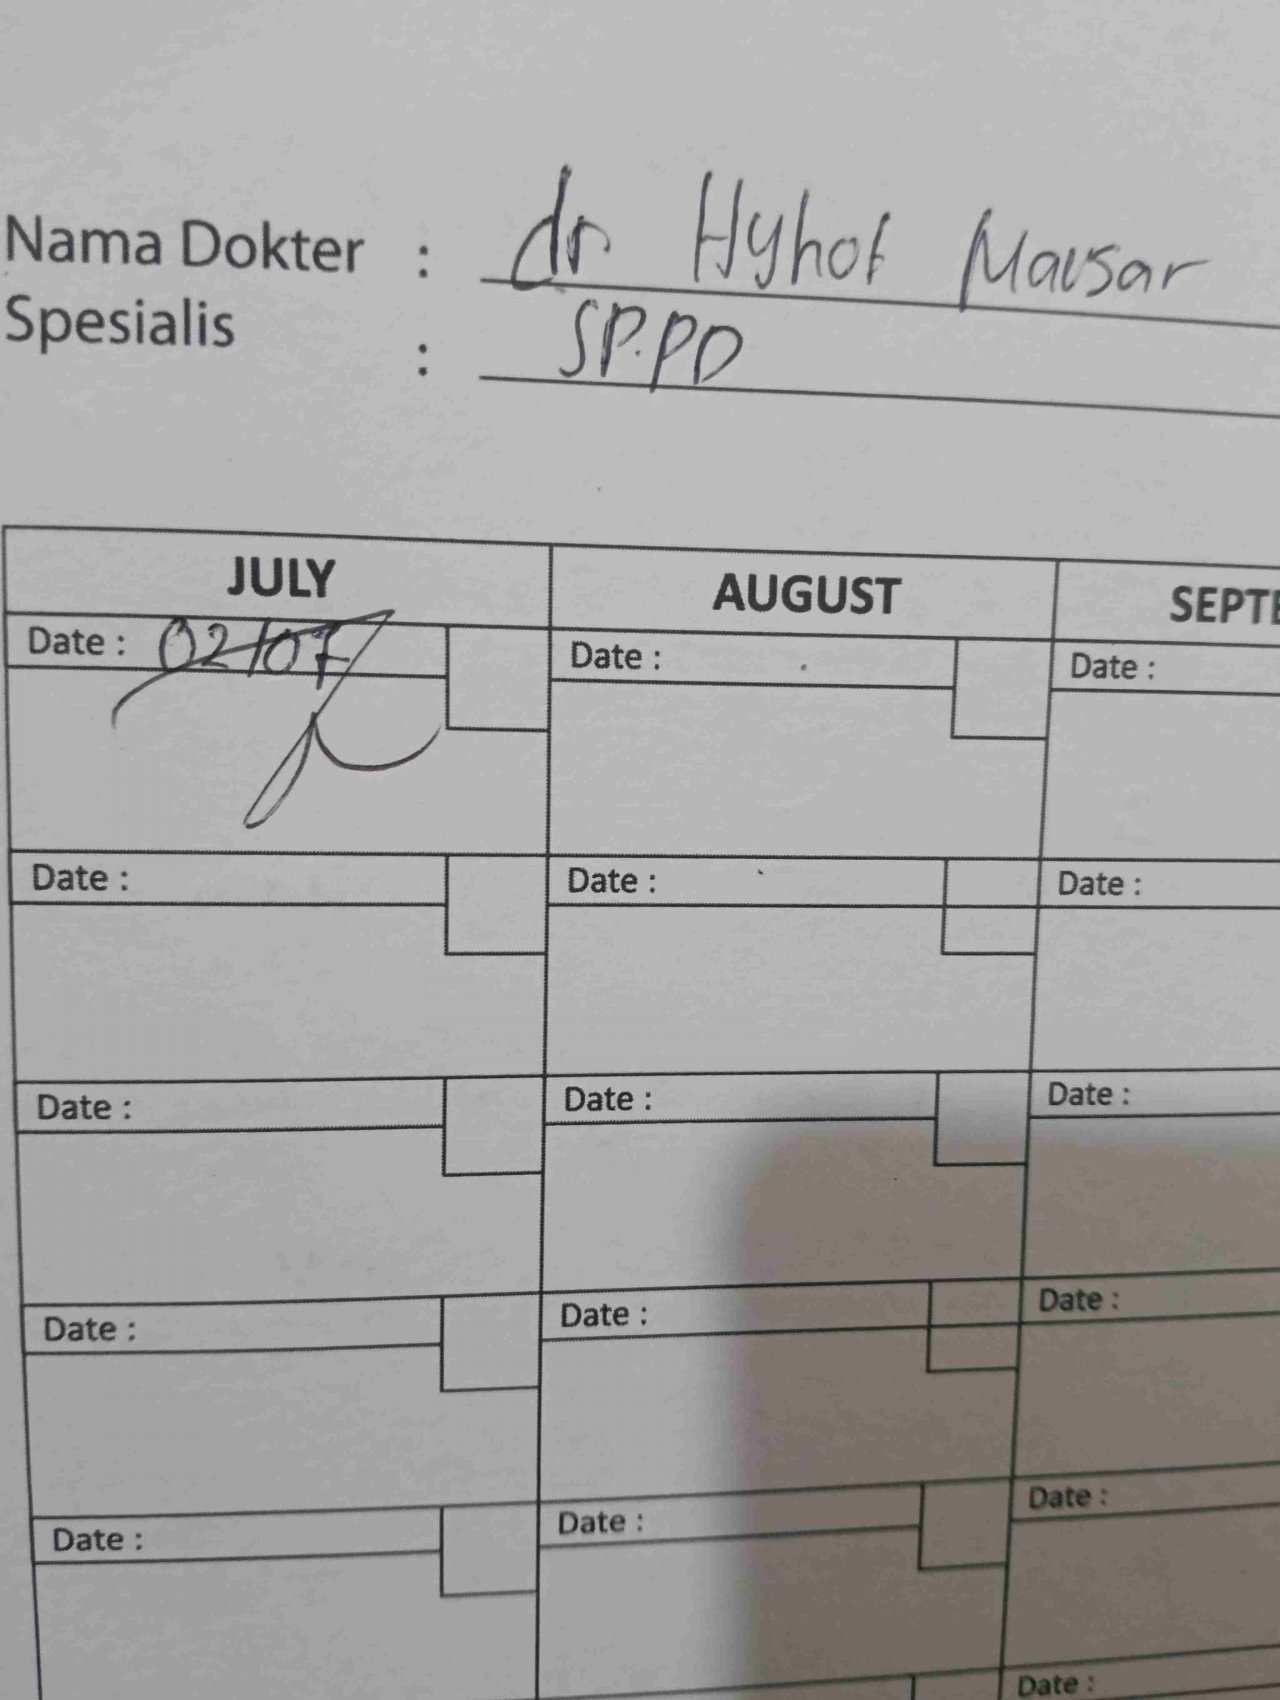 Nama Dokter : dr Hyhot Mausar
Spesialis : SP.PD
JULY AUGUST SEPTE
Date : 02/07 Date : Date :
Date : Date : Date :
Date : Date : Date :
Date : Date : Date :
Date : Date : Date :
Date :